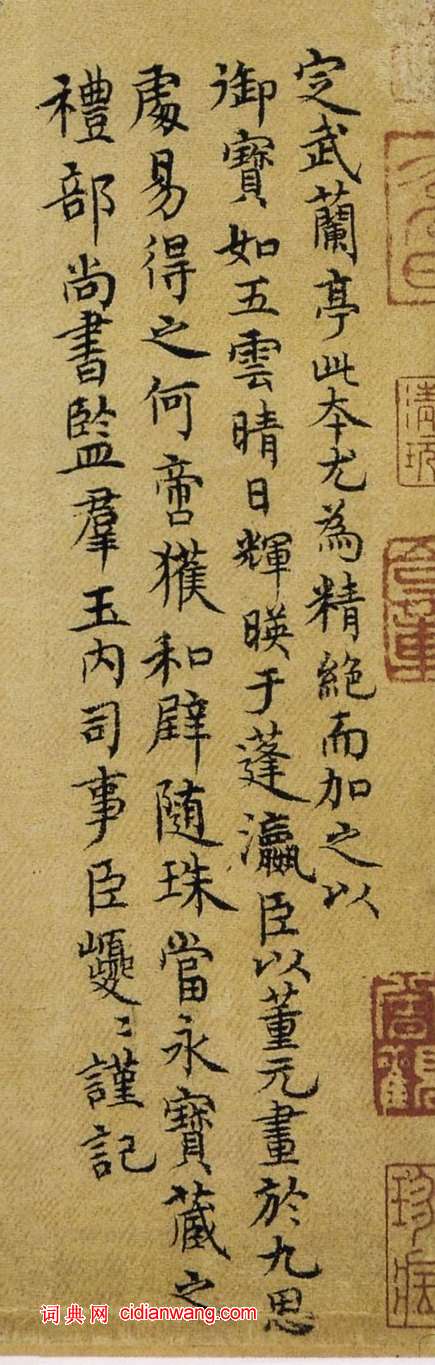 定武蘭亭此本尤為精絕而加之以
御寶如五雲晴日輝暎于蓬瀛臣以董元畫於九思
處易得之何啻獲和璧随珠當永寶蔵之
禮部尚書監羣玉内司事臣巙〻謹記
词典网 cidianwang.com